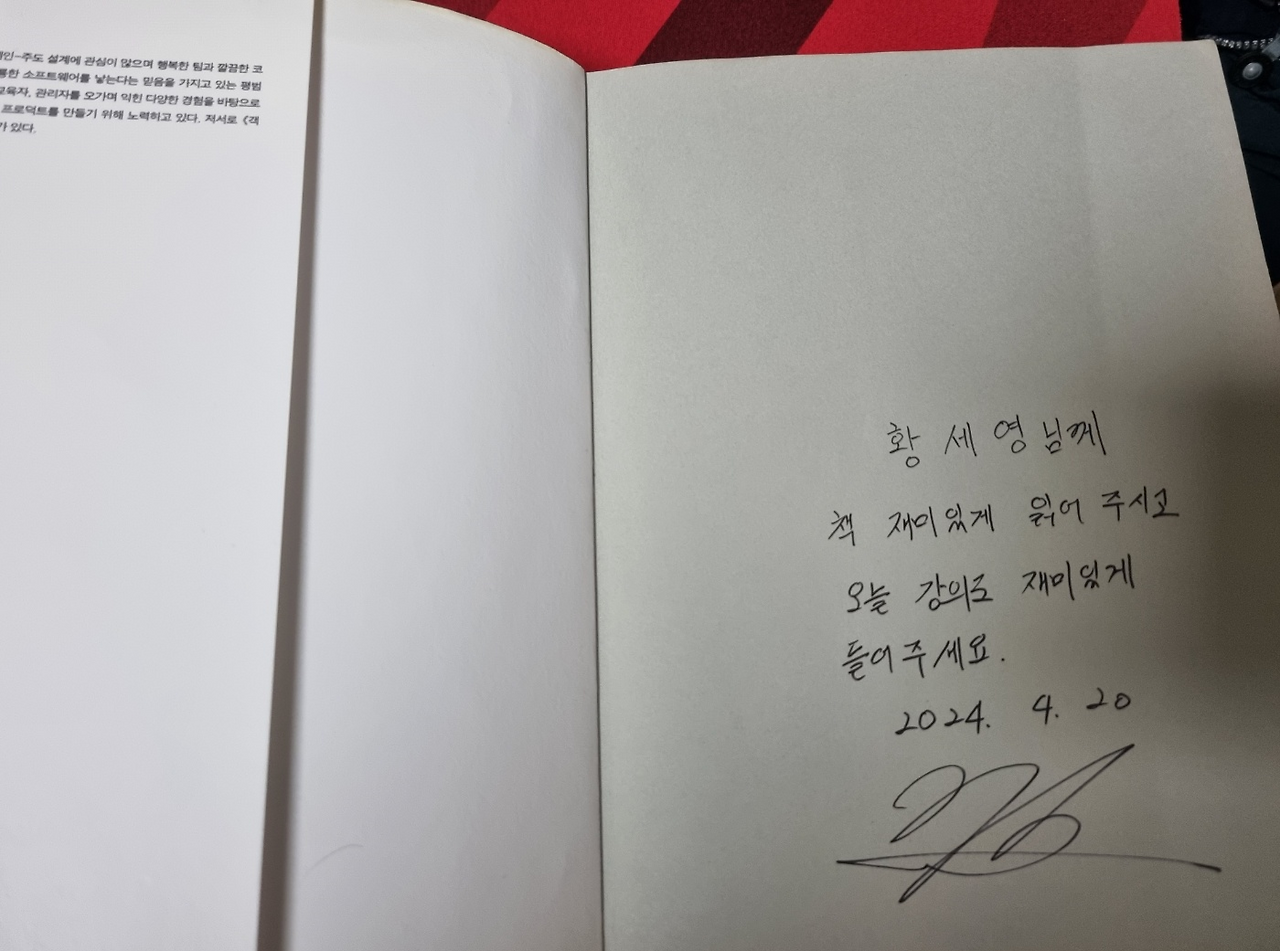 인-주도 설계에 관심이 많으며 행복한 팀과 깔끔한 코
륭한 소프트웨어를 낳는다는 믿음을 가지고 있는 평범
교육자, 관리자를 오가며 익힌 다양한 경험을 바탕으로
프로덕트를 만들기 위해 노력하고 있다. 저서로 《객
가 있다.
황세영님께
책 재미있게 읽어 주시고
오늘 강의도 재미있게
들어주세요.
2024. 4. 20